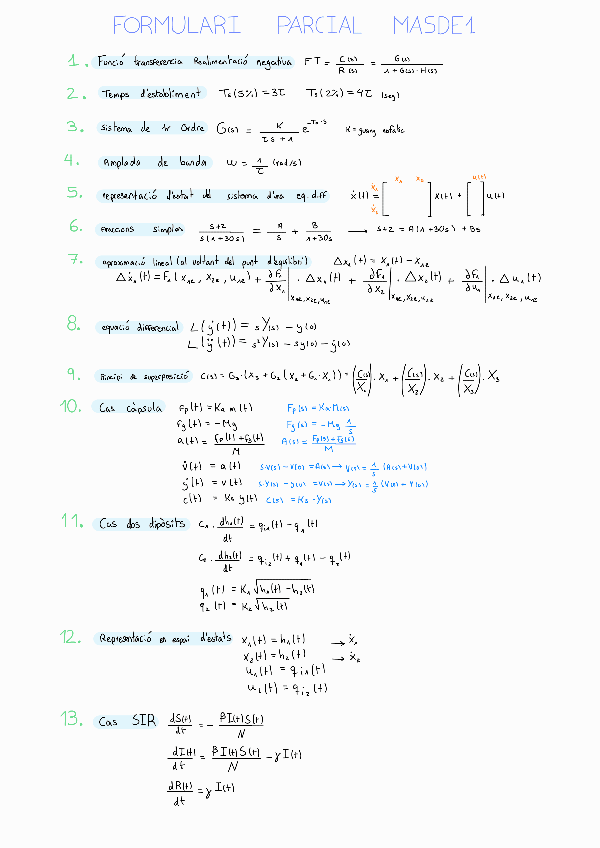 FORMULARI PARCIAL MASDE1
1. Funció transferencia Realimentació negativa FT = C(s)/R(s) = G(s)/(1 + G(s)·H(s))
2. Temps d'establiment Ts(5%) = 3τ Ts(2%) = 4τ (seg)
3. sistema de 1r ordre G(s) = K/(τs + 1) e^(-To·s) K = guany estàtic
4. Amplada de banda ω = 1/τ (rad/s)
5. representació d'estat del sistema d'eq. diff ẋ(t) = [ ] x(t) + [ ] u(t)
6. Fraccions simples (s+2)/(s(1+30s)) = A/s + B/(1+30s) → s+2 = A(1+30s) + Bs
7. aproximació lineal (al voltant del punt d'equilibri) Δx₁(t) = x₁(t) − x₁e
Δẋ₁(t) = F₁(x₁e, x₂e, u₁e) + ∂F₁/∂x₁|x₁e,x₂e,u₁e · Δx₁(t) + ∂F₁/∂x₂|x₁e,x₂e,u₁e · Δx₂(t) + ∂F₁/∂u₁|x₁e,x₂e,u₁e · Δu₁(t)
8. equació differencial L(ẏ(t)) = sY(s) − y(0)
L(ÿ(t)) = s²Y(s) − sy(0) − ẏ(0)
9. Principi de superposició C(s) = G₃·(X₃ + G₂(X₂ + G₁·X₁)) = (C(s)/X₁)·X₁ + (C(s)/X₂)·X₂ + (C(s)/X₃)·X₃
10. Cas càpsula Fp(t) = Ka m(t) Fp(s) = Ka·M(s)
Fg(t) = −Mg Fg(s) = −Mg 1/s
a(t) = (Fp(t) + Fg(t))/M A(s) = (Fp(s) + Fg(s))/M
v̇(t) = a(t) s·V(s) − v(0) = A(s) → V(s) = 1/s (A(s) + V(0))
ẏ(t) = v(t) s·Y(s) − y(0) = V(s) → Y(s) = 1/s (V(s) + Y(0))
c(t) = Ks y(t) C(s) = Ks·Y(s)
11. Cas dos dipòsits C₁·dh₁(t)/dt = qi₁(t) − q₁(t)
C₂·dh₂(t)/dt = qi₂(t) + q₁(t) − q₂(t)
q₁(t) = K₁√(h₁(t) − h₂(t))
q₂(t) = K₂√(h₂(t))
12. Representació en espai d'estats x₁(t) = h₁(t) → ẋ₁
x₂(t) = h₂(t) → ẋ₂
u₁(t) = qi₁(t)
u₂(t) = qi₂(t)
13. Cas SIR dS(t)/dt = − βI(t)S(t)/N
dI(t)/dt = βI(t)S(t)/N − γI(t)
dR(t)/dt = γI(t)